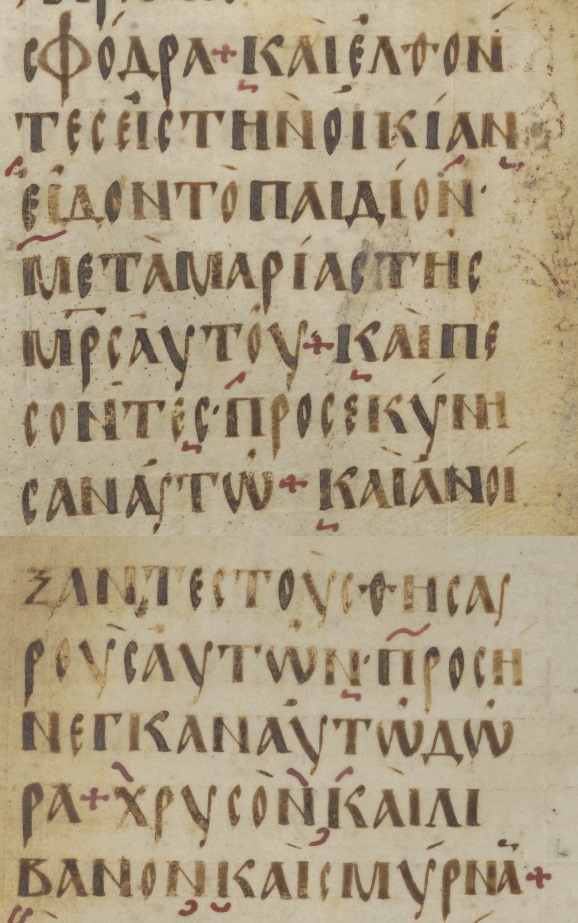 σφόδρα + καὶ ἐλθόν
τες εἰς τὴν οἰκίαν
εἶδον τὸ παιδίον·
μετὰ μαρίας τῆς
μρ̅ς αὐτοῦ + καὶ πε
σόντες· προσεκύνη
σαν αὐτῶ + καὶ ἀνοί
ξαντες τοὺς θησαυ
ροὺς αὐτῶν· προσή
νεγκαν αὐτῶ δῶ
ρα + χρυσὸν καὶ λί
βανον καὶ σμύρναν +